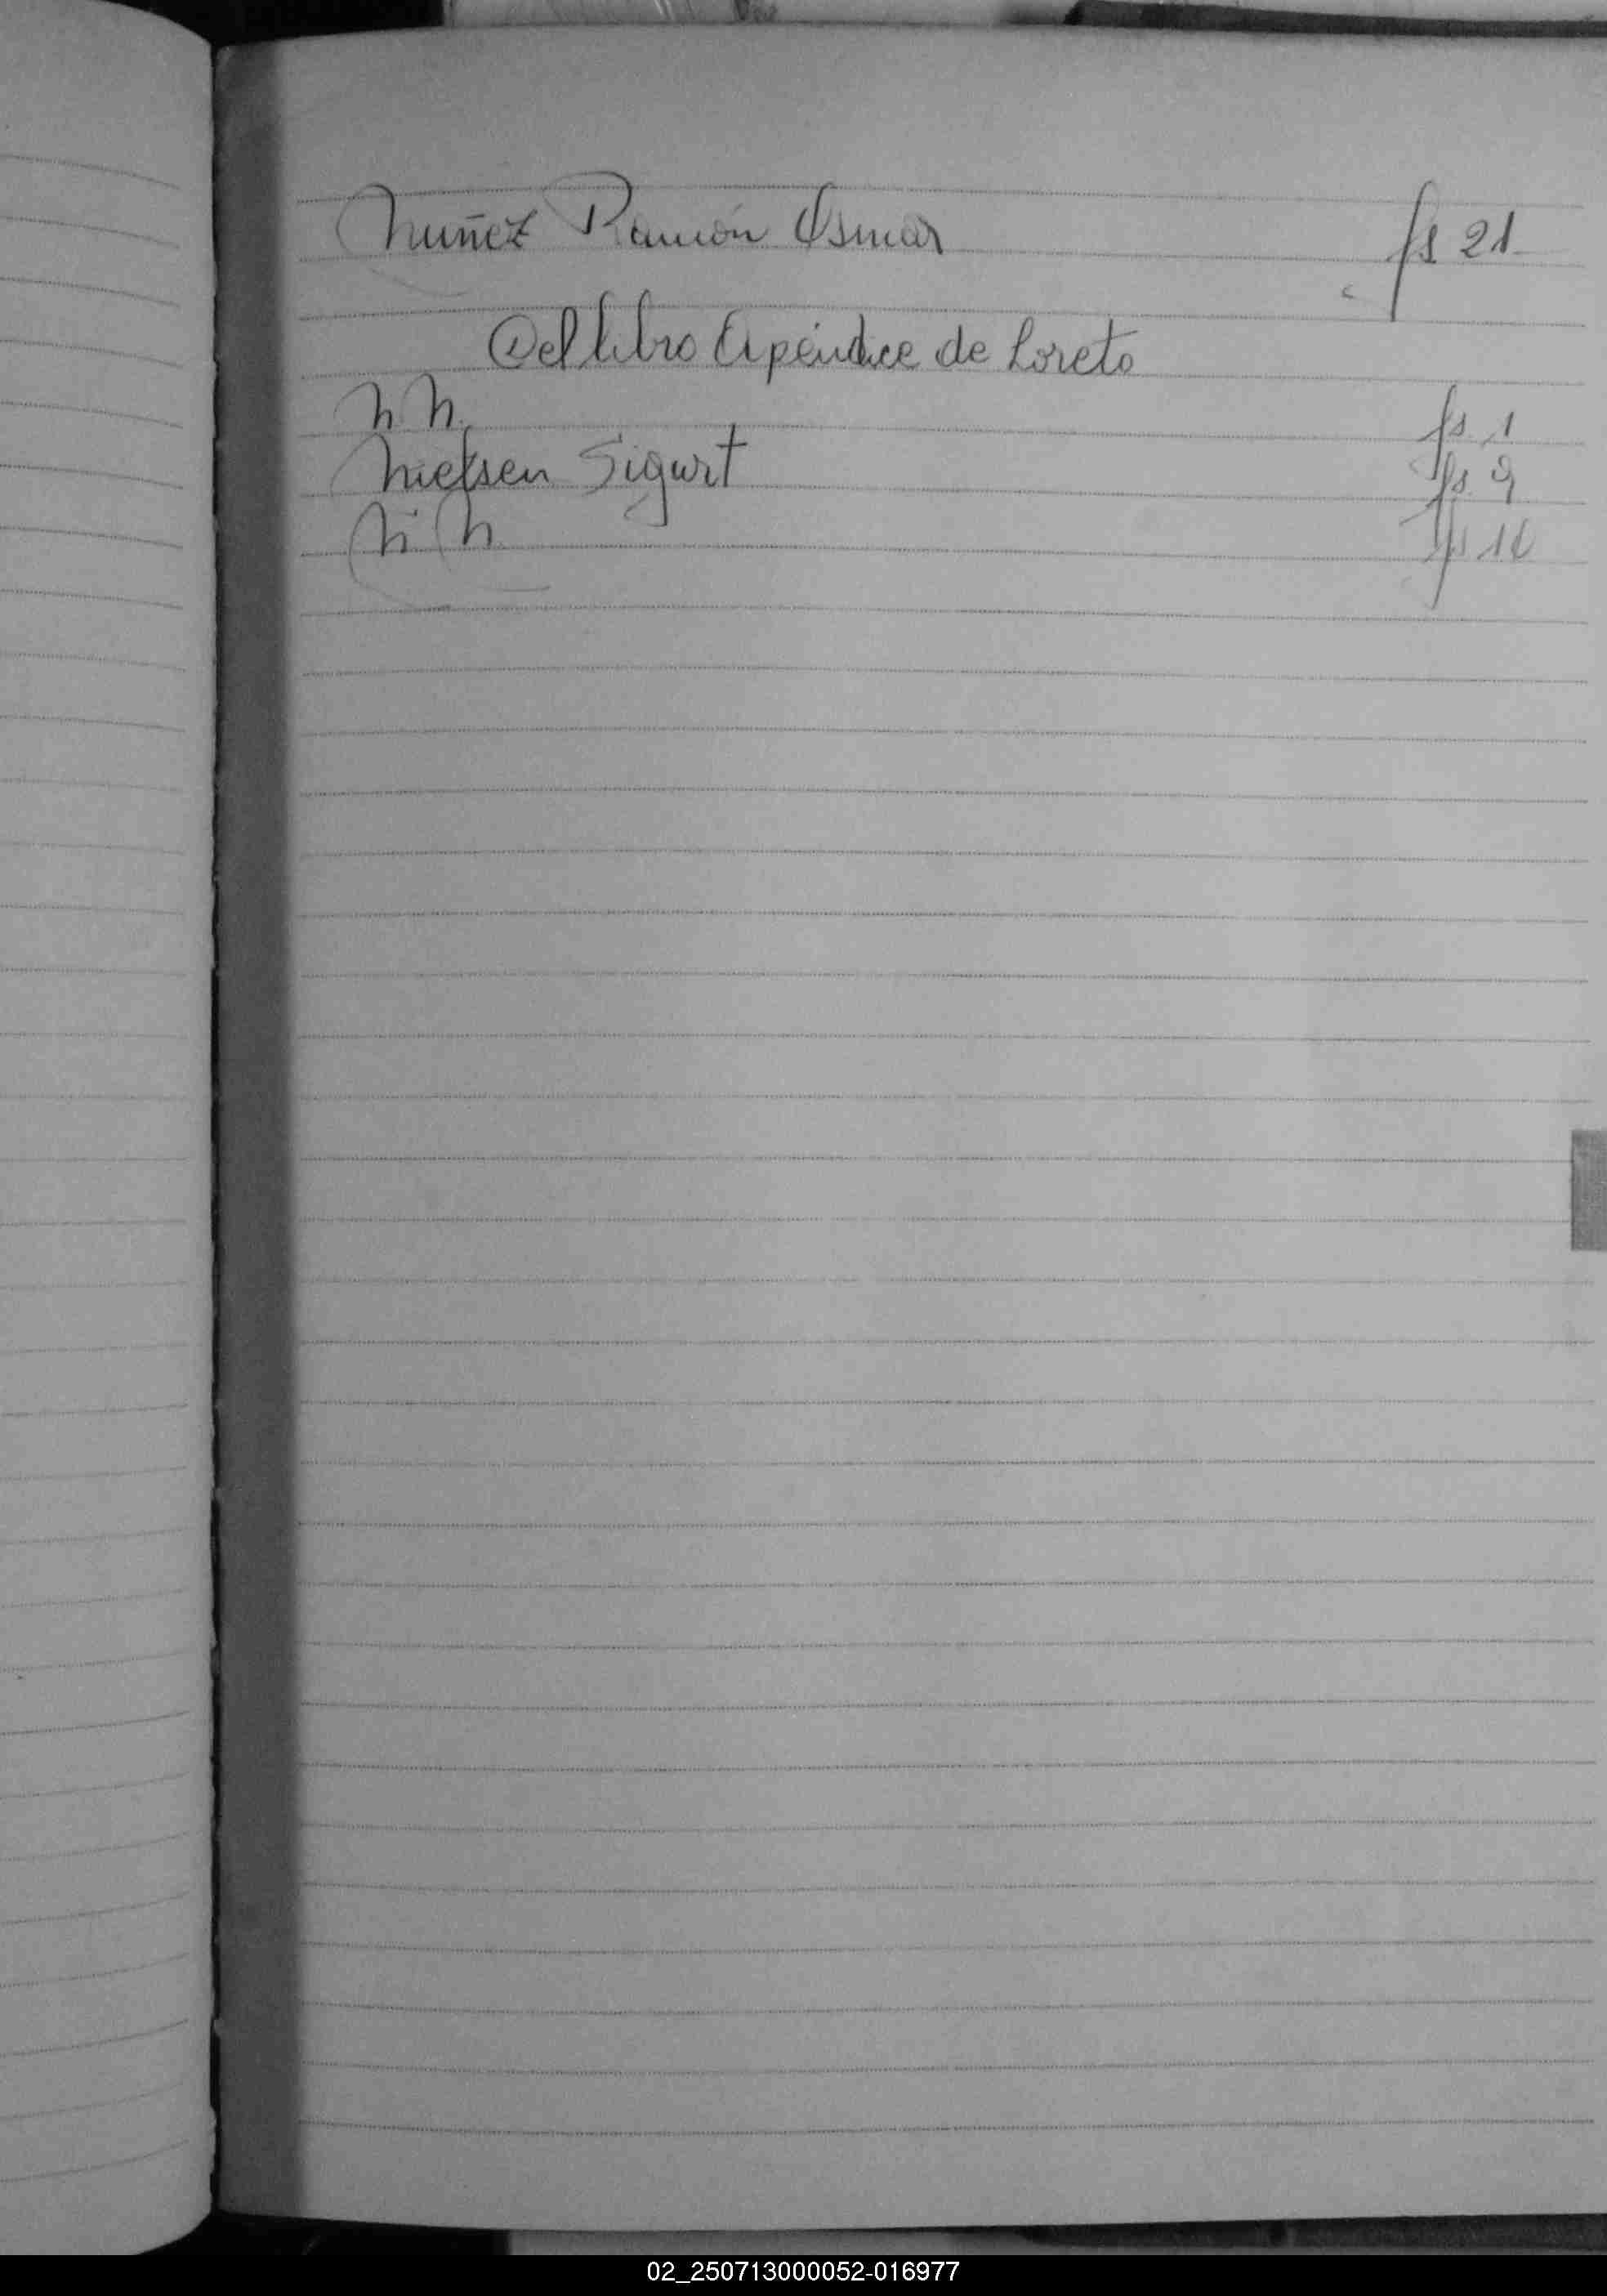 Nuñez Ramón Osmar fs 21
Del libro Apéndice de Loreto
N N. fs. 1
Nielsen Sigurt fs. 9
N. N. fs
02_250713000052-016977